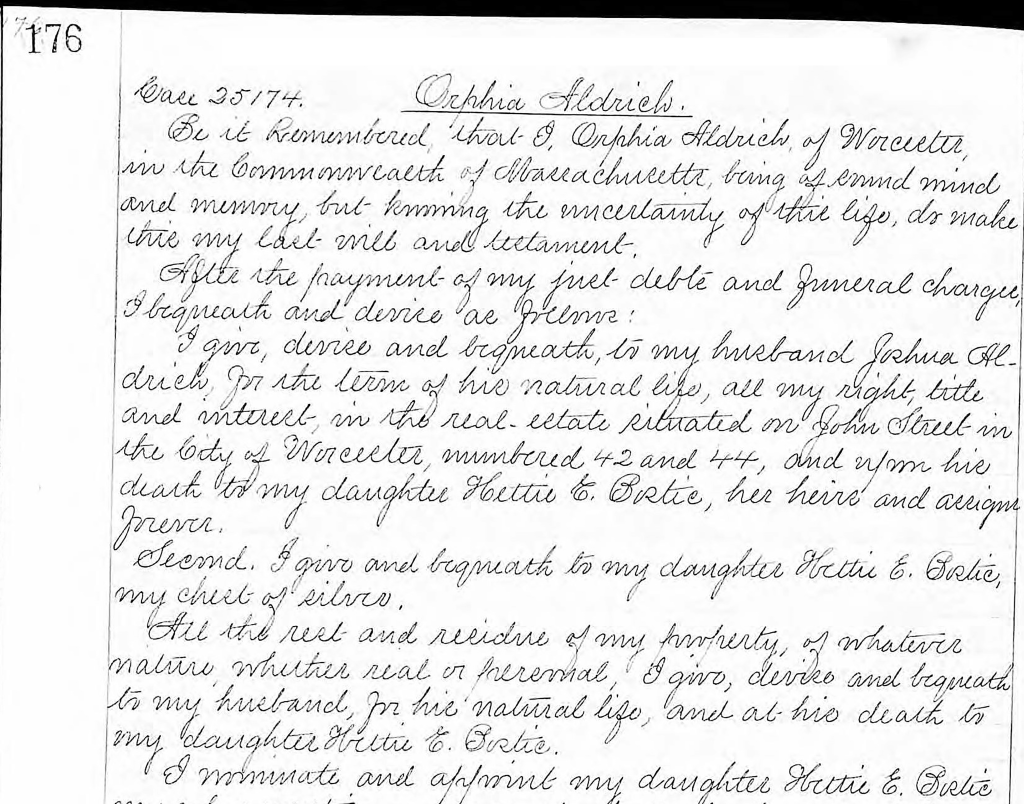 176
Case 25174. Orphia Aldrich.
Be it Remembered, that I, Orphia Aldrich, of Worcester,
in the Commonwealth of Massachusetts, being of sound mind
and memory, but knowing the uncertainty of this life, do make
this my last will and testament.
After the payment of my just debts and funeral charges,
I bequeath and devise as follows:
I give, devise and bequeath, to my husband Joshua Al-
drich, for the term of his natural life, all my right, title
and interest, in the real-estate situated on John Street in
the City of Worcester, numbered 42 and 44, and upon his
death to my daughter Hettie E. Bostic, her heirs and assigns
forever.
Second. I give and bequeath to my daughter Hettie E. Bostic,
my chest of silver.
All the rest and residue of my property, of whatever
nature, whether real or personal, I give, devise and bequeath
to my husband, for his natural life, and at his death to
my daughter Hettie E. Bostic.
I nominate and appoint my daughter Hettie E. Bostic